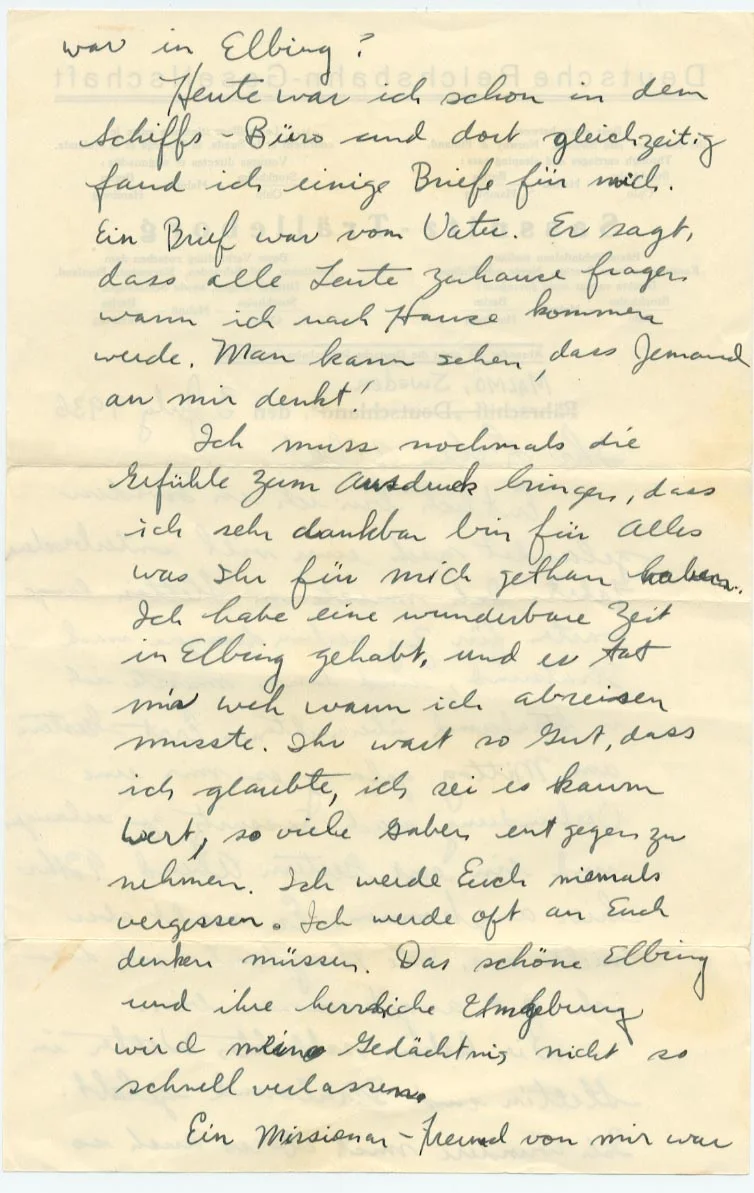 war in Elbing?
Heute war ich schon in dem
Schiffs-Büro und dort gleichzeitig
fand ich einige Briefe für mich.
Ein Brief war vom Vater. Er sagt,
dass alle Leute zuhause fragen
wann ich nach Hause kommen
werde. Man kann sehen, dass Jemand
an mir denkt!
Ich muss nochmals die
Gefühle zum Ausdruck bringen, dass
ich sehr dankbar bin für Alles
was Ihr für mich gethan haben.
Ich habe eine wunderbare Zeit
in Elbing gehabt, und es tat
mir weh wann ich abreisen
musste. Ihr wart so Gut, dass
ich glaubte, ich sei es kaum
wert, so viele Gaben entgegen zu
nehmen. Ich werde Euch niemals
vergessen. Ich werde oft an Euch
denken müssen. Das schöne Elbing
und ihre herrliche Umgebung
wird meine Gedächtnis nicht so
schnell verlassen.
Ein Missionar-Freund von mir war